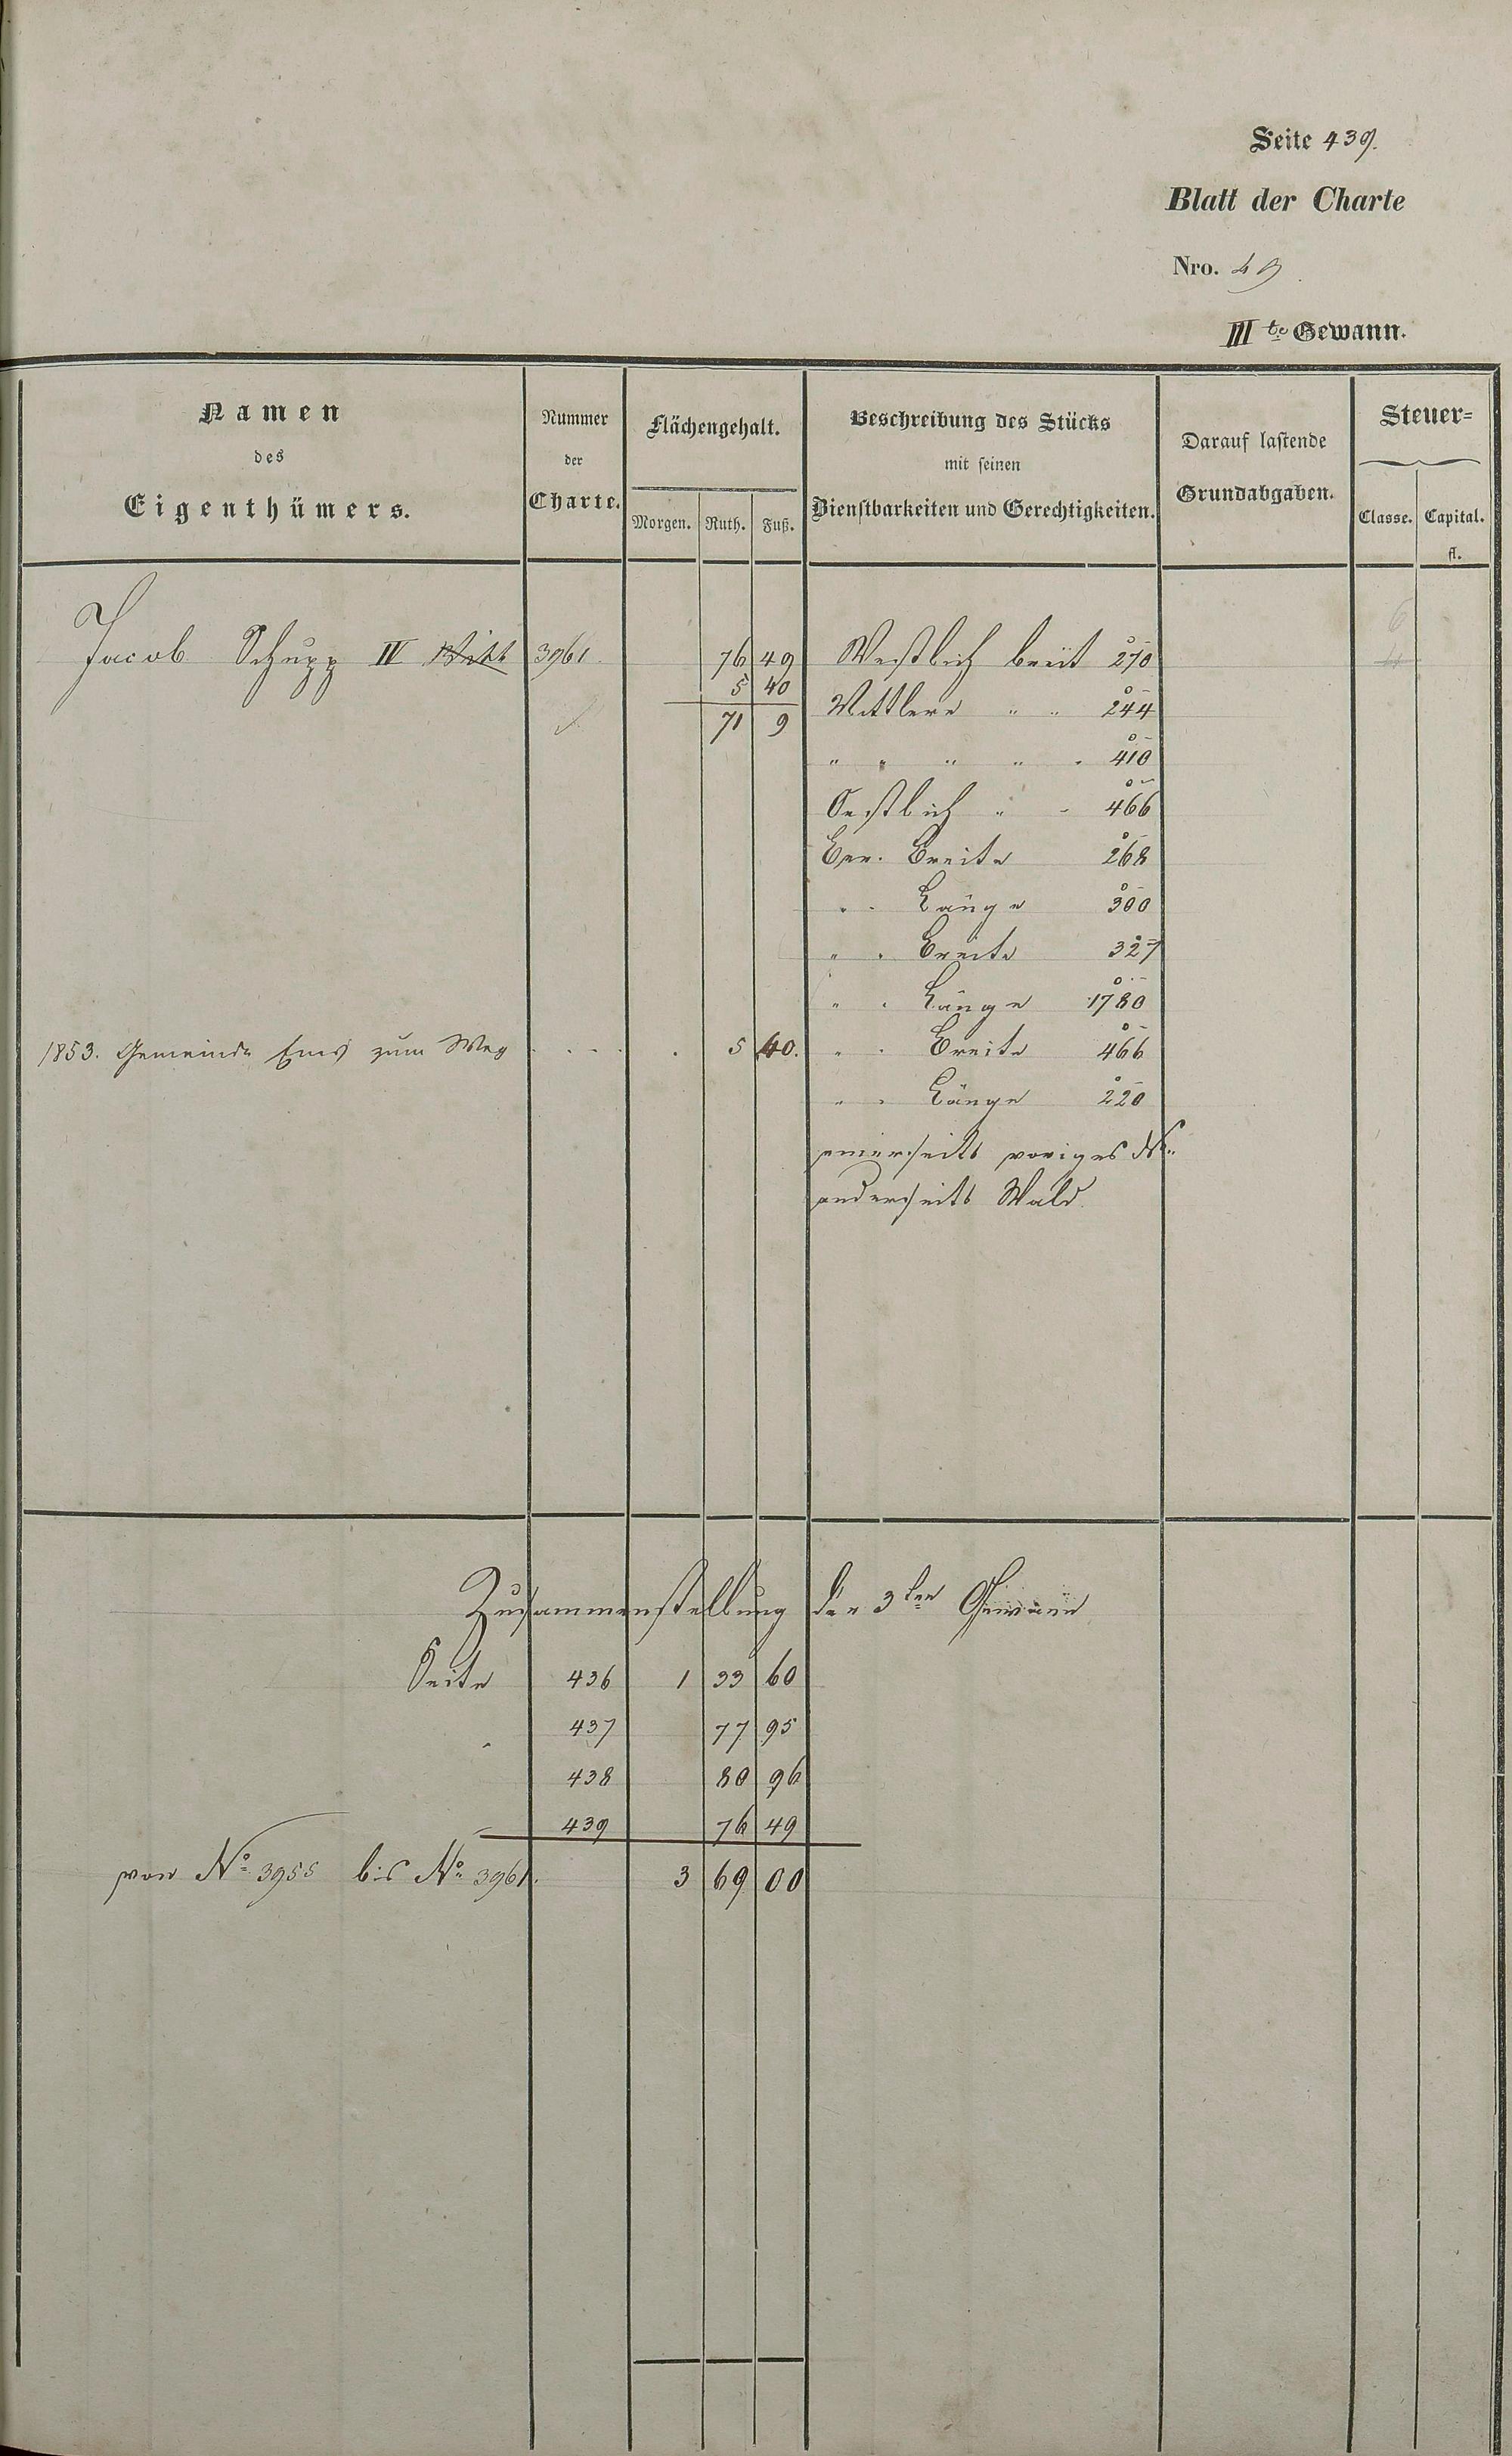 Seite 439.
Blatt der Charte
Nro. 49
III te Gewann.
Namen
des
Eigenthümers.
Nummer
der
Charte.
Flächengehalt.
Morgen. Ruth. Fuß.
Beschreibung des Stücks
mit seinen
Dienstbarkeiten und Gerechtigkeiten.
Darauf lastende
Grundabgaben.
Steuer=
Classe. Capital.
fl.
Jacob Schupp IV 3961. 76 49 Westlich breit 270 6
5 40 4
71 9 Mittlere " " 244
" " " " " 410
Oestlich " " 466
Err. Breite 268
" " Länge 300
" " Breite 327
" " Länge 1780
1853. Gemeinde Ems zum Weg . . . . . 5 40. " " Breite 466
" " Länge 220
einerseits voriges No.
anderseits Wald.
Zusammenstellung der 3ten Gewann
Seite 436 1 33 60
437 77 95
438 80 96
439 76 49
von No 3955 bis No 3961. 3 69 00